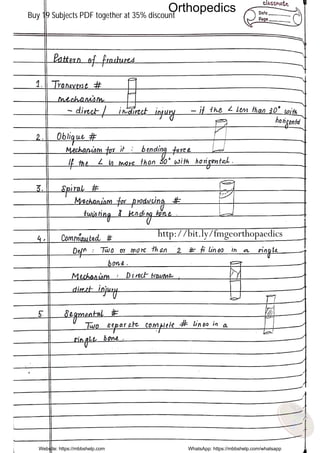 Buy 19 Subjects PDF together at 35% discount
Orthopedics
classmate
Date
Page
Pattern of fractures
1. Transverse #
mechanism
- direct / indirect injury - if the ∠ less than 30° with
horizontal
2. Oblique #
Mechanism for it : bending force
If the ∠ is more than 30° with horizontal.
3. Spiral #
Mechanism for producing #
twisting & bending bone.
http://bit.ly/fmgeorthopaedics
4. Comminuted #
Defn : Two or more than 2 # lines in a single
bone.
Mechanism : Direct trauma,
direct injury
5 Segmental #
Two separate complete # lines in a
single bone.
Website: https://mbbshelp.com
WhatsApp: https://mbbshelp.com/whatsapp